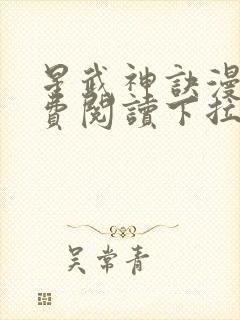 星武神訣漫
費閱讀下拉
吳常青